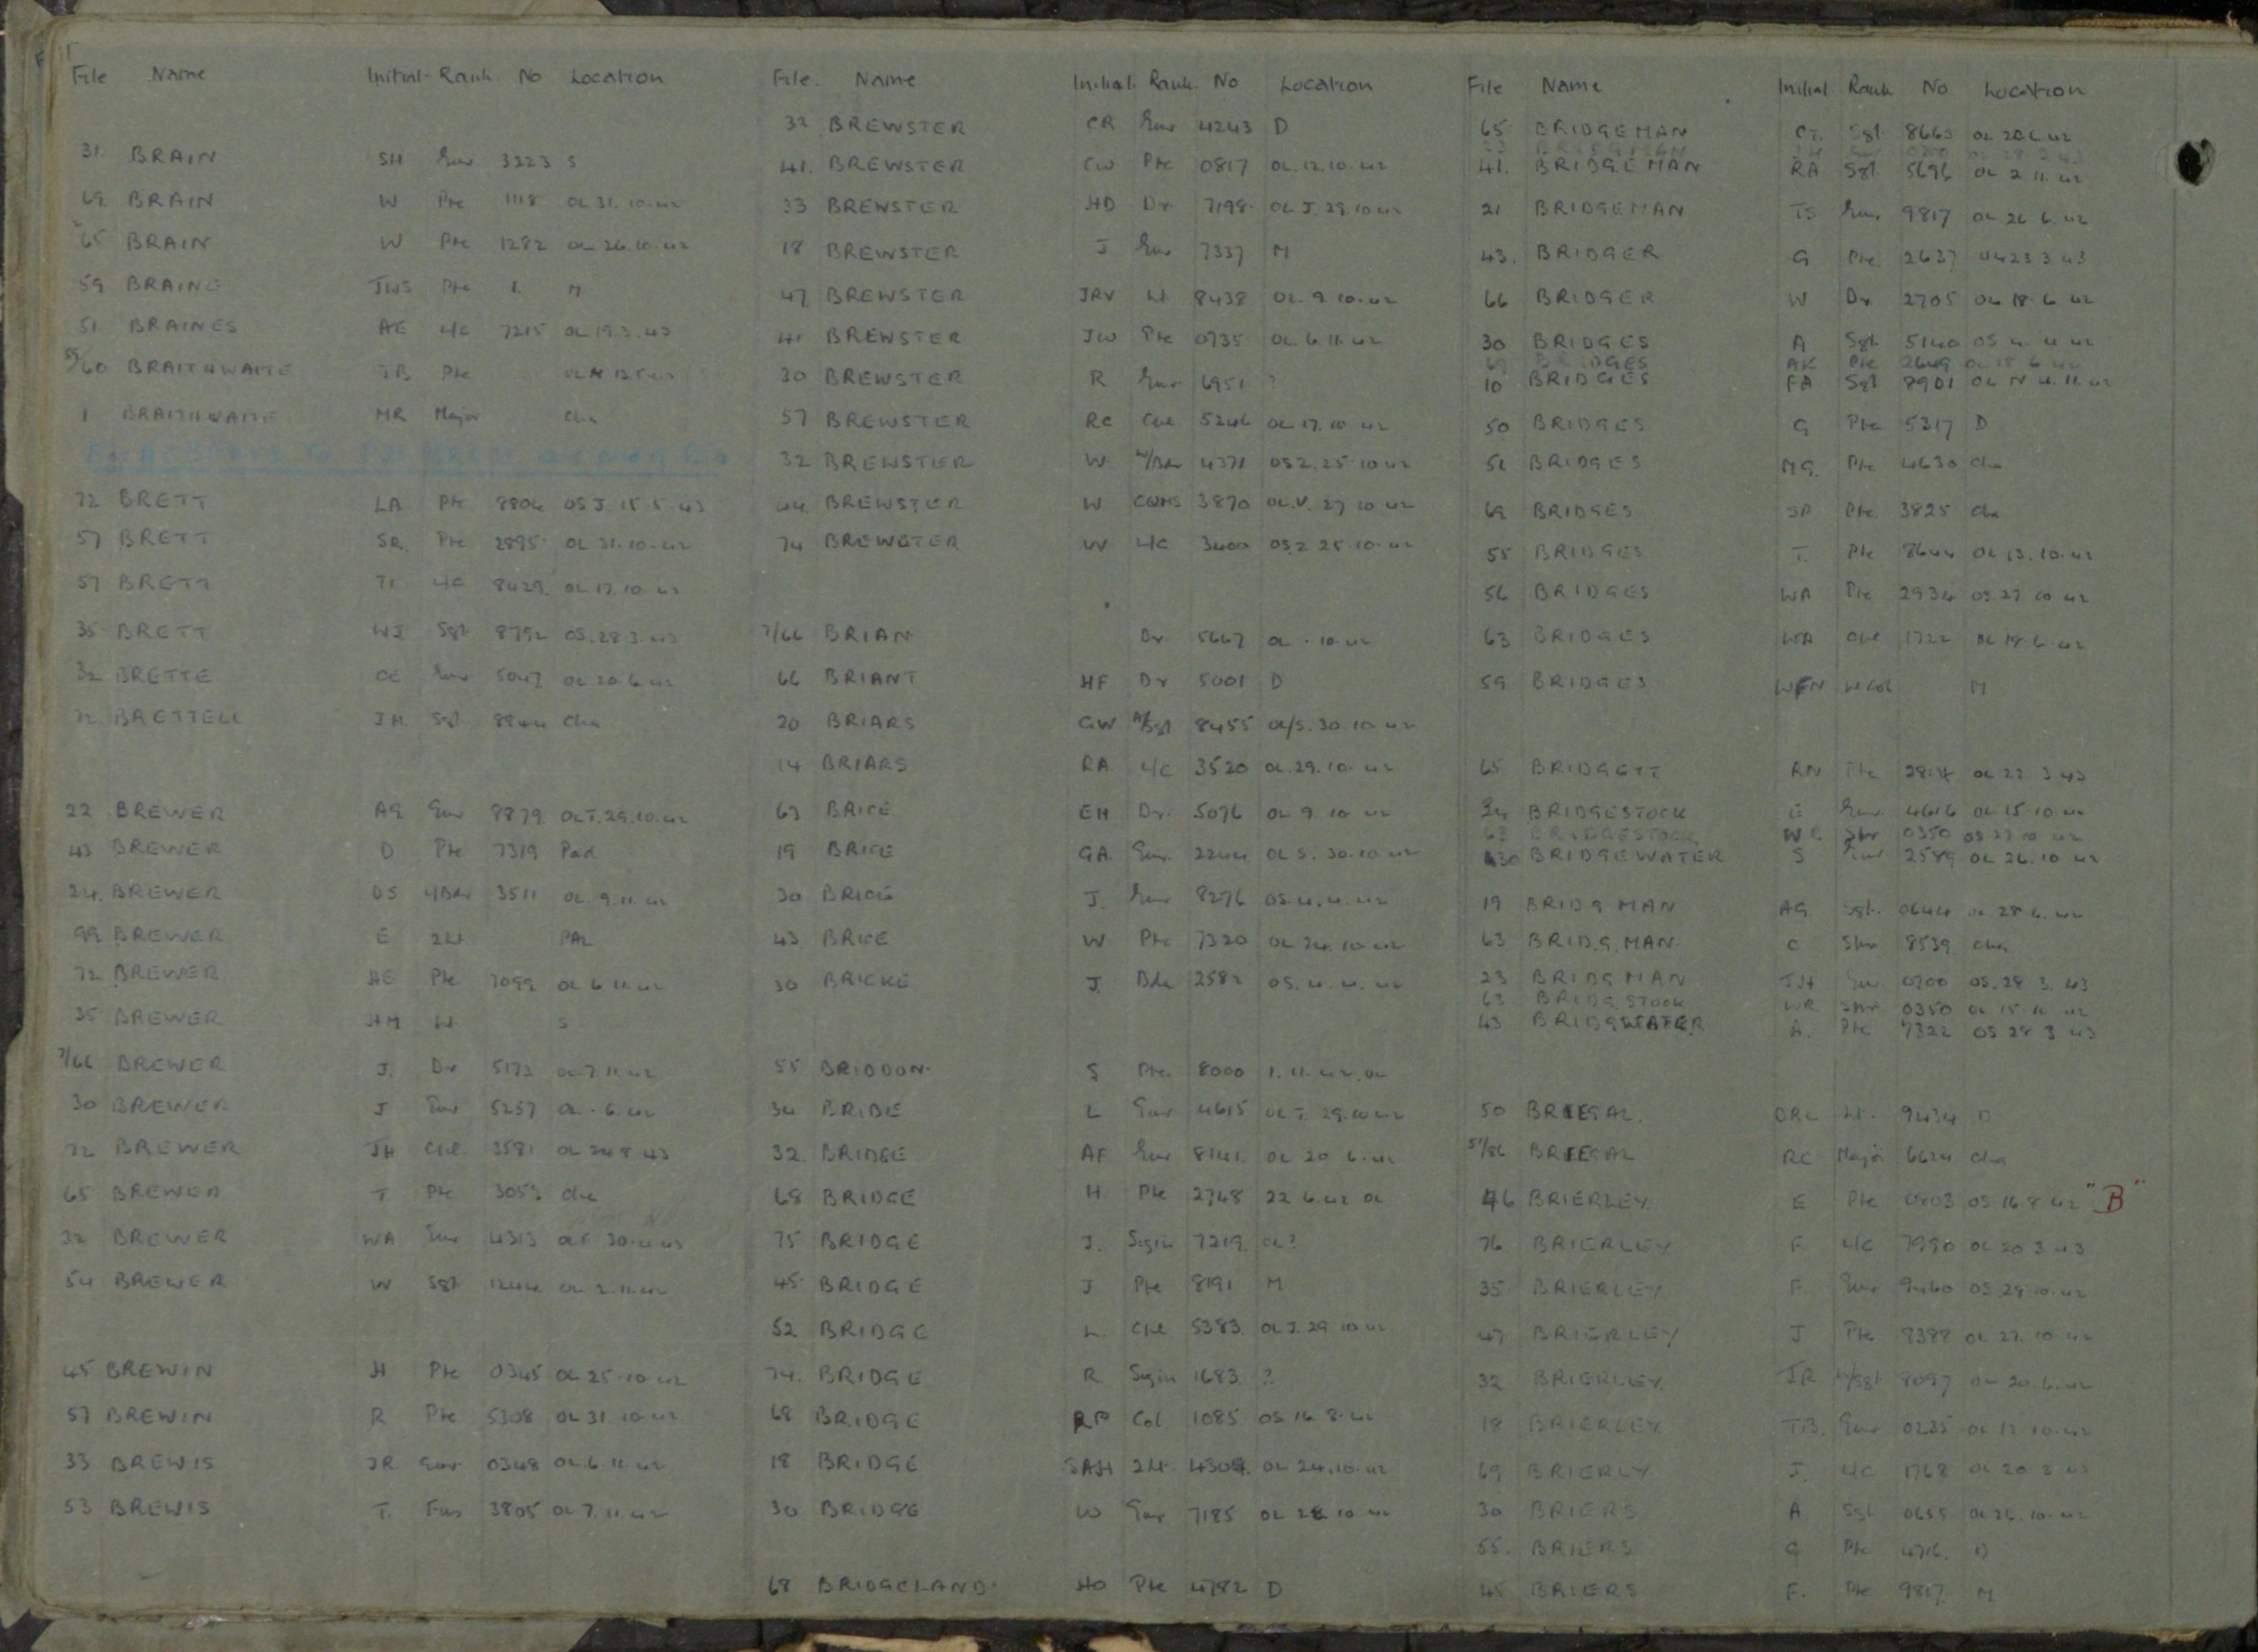 File Name Initial. Rank. No Location
31. BRAIN SH Gnr 3223 S
69 BRAIN W Pte 1118 OL 31.10.42
65 BRAIN W Pte 1282 OL 26.10.42
59 BRAINE JWS Pte 1. M
51 BRAINES AE L/C 7215 OL 19.3.43
55/60 BRAITHWAITE JB Pte
1 BRAITHWAITE MR Major Cha
72 BRETT LA Pte 8804 OS J. 15.5.43
57 BRETT SR. Pte 2895 OL 31.10.42
57 BRETT L/C 8429. OL 17.10.42
35 BRETT WJ Sgt 8792 OS.28.3.43
32 BRETTE CE Gnr 5047 OL 20.6.42
72 BRETTELL JH Sgt 8844 Cha
22 BREWER AG Gnr 8879. OL T.29.10.42
43 BREWER D Pte 7319 Pad
24. BREWER DS L/Bdr 3511 OL 9.11.42
99 BREWER E 2Lt PAL
72 BREWER HE Pte 7099 OL 6.11.42
35 BREWER HM Lt S
7/66 BREWER J. Dr 5173 OL 7.11.42
30 BREWER J Gnr 5257 OL .6.42
72 BREWER JH Cpl 3581 OL 24.8.43
65 BREWER T Pte 3053 Cha
32 BREWER WA Gnr 4313
54 BREWER W Sgt 1244 OL 2.11.42
45 BREWIN H Pte 0345 OL 25.10.42
57 BREWIN R Pte 5308 OL 31.10.42
33 BREWIS JR. Gnr 0348 OL.6.11.42
53 BREWIS T. Fus 3805 OL 7.11.42
File. Name Initial. Rank. No Location
32 BREWSTER CR Gnr 4243 D
41. BREWSTER CW Pte 0817 OL.12.10.42
33 BREWSTER HD Dr. 7198. OL J.29.10.42
18 BREWSTER J Gnr 7337 M
47 BREWSTER JRV Lt 8438 OL.9.10.42
41 BREWSTER JW Pte 0735. OL.6.11.42
30 BREWSTER R Gnr 6951 ?
57 BREWSTER RC Cpl 5246 OL 17.10.42
32 BREWSTER W W/Bdr 4371 OS Z.25.10.42
44. BREWSTER W CQMS 3870 OL.V.27.10.42
74 BREWSTER W L/C 3400 OS.Z 25.10.42
7/66 BRIAN Dr. 5667 OL .10.42
66 BRIANT HF Dr 5001 D
20 BRIARS GW 8455 OL/S.30.10.42
14 BRIARS RA. L/C 3520 OL.29.10.42
63 BRICE EH Dr. 5076 OL 9.10.42
19 BRICE GA. Gnr. 2244 OL S.30.10.42
30 BRICE J. Gnr 8276 OS.4.4.42
43 BRICE W Pte 7320 OL 24.10.42
30 BRICKE J. Bdr 2582 OS.4.4.42
55 BRIDDON. S Pte. 8000 1.11.42.OL
34 BRIDE L Gnr 4615 OL T.29.10.42
32. BRIDGE AF Gnr 8141. OL 20.6.42
68 BRIDGE H. Pte 2748 22.6.42 OL
75 BRIDGE J. Sigm 7219. OL ?
45 BRIDGE J Pte 8191 M
52 BRIDGE L. Cpl 5383. OL J.29.10.42
74. BRIDGE R. Sigm 1683. ?
68 BRIDGE RP Col 1085 OS.16.8.42
18 BRIDGE SAH 2Lt 4304. OL 24.10.42
30 BRIDGE W Gnr 7185 OL 28.10.42
68 BRIDGELAND. HO Pte 4782 D
File Name Initial Rank No Location
65 BRIDGEMAN Sgt 8663 OL 20.6.42
23 BRIDGMAN
41. BRIDGEMAN RA Sgt. 5696 OL 2.11.42
21 BRIDGEMAN TS Gnr 9817 OL 26.6.42
43. BRIDGER G Pte. 2637 OL 23.3.43
66 BRIDGER W Dr 2705 OL 18.6.42
30 BRIDGES A Sgt. 5140 OS 4.4.42
69 BRIDGES AK Pte 2649 OL 18.6.42
10 BRIDGES FA Sgt 8901 OL N 4.11.42
50 BRIDGES G Pte 5317 D
51 BRIDGES MG. Pte 4630 Cha
69 BRIDGES SP Pte. 3825 Cha
55 BRIDGES T. Pte 8644 OL 13.10.42
56 BRIDGES WA Pte 2934 OS.27.10.42
63 BRIDGES WA Cpl 1722 OL 18.6.42
59 BRIDGES WFN W Col M
65 BRIDGETT RN Pte OL 22.3.43
34 BRIDGESTOCK E Gnr. 4616 OL 15.10.42
63 BRIDGESTOCK WR. Spr 0350 OS 27.10.42
30 BRIDGEWATER S Gnr 2589 OL 26.10.42
19 BRIDGMAN AG Sgt. 0644 OL 28.6.42
63 BRIDGMAN. C Spr 8539 Cha
23 BRIDGMAN JH Gnr 0700 OS.28.3.43
63 BRIDGSTOCK WR. Spr 0350 OL 15.10.42
43 BRIDGWATER A. Pte 7322 OS 28.3.43
50 BRIEGAL. DRL Lt. 9434 D
51/86 BRIEGAL RC Major 6624 Cha
46 BRIERLEY E Pte 0803 OS 16.8.42 "B"
76 BRIERLEY F. L/C 7990 OL 20.3.43
35 BRIERLEY F Gnr 9460 OS.28.10.42
47 BRIERLEY J Pte 8388 OL 27.10.42
32 BRIERLEY. JR W/Sgt 8097 OL 20.6.42
18 BRIERLEY. TB. Gnr 0235 OL 12.10.42
69 BRIERLY J. L/C 1768
30 BRIERS A Sgt 0655 OL 26.10.42
55. BRIERS G Pte 4716. D
45 BRIERS F. Pte 9817. M